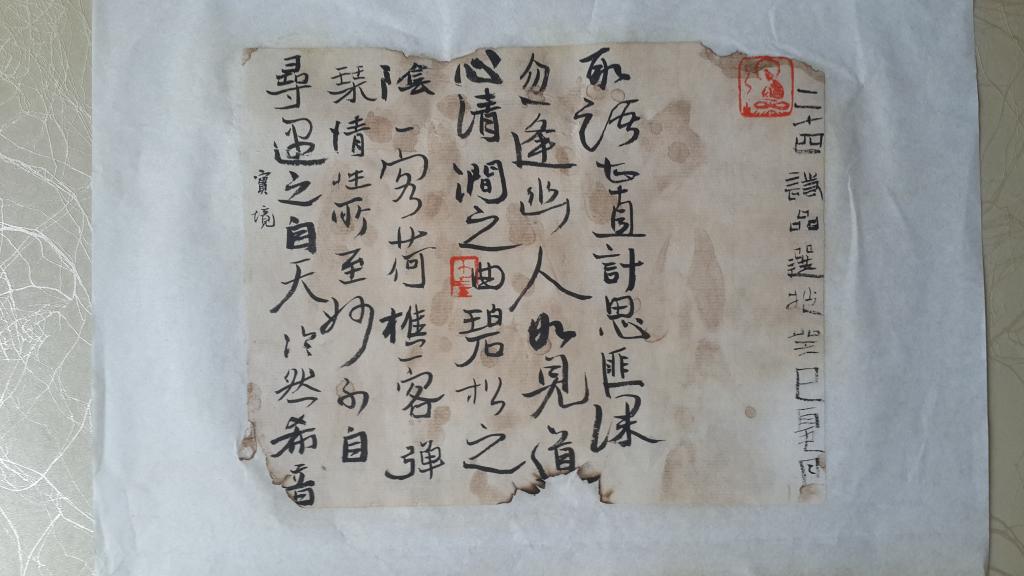 二十四詩品選抄癸巳夏
取語甚直計思匪深
忽逢幽人如見道
心清澗之曲碧松之
陰一客荷樵一客彈
琹情性所至妙不自
尋遇之自天泠然希音
實境